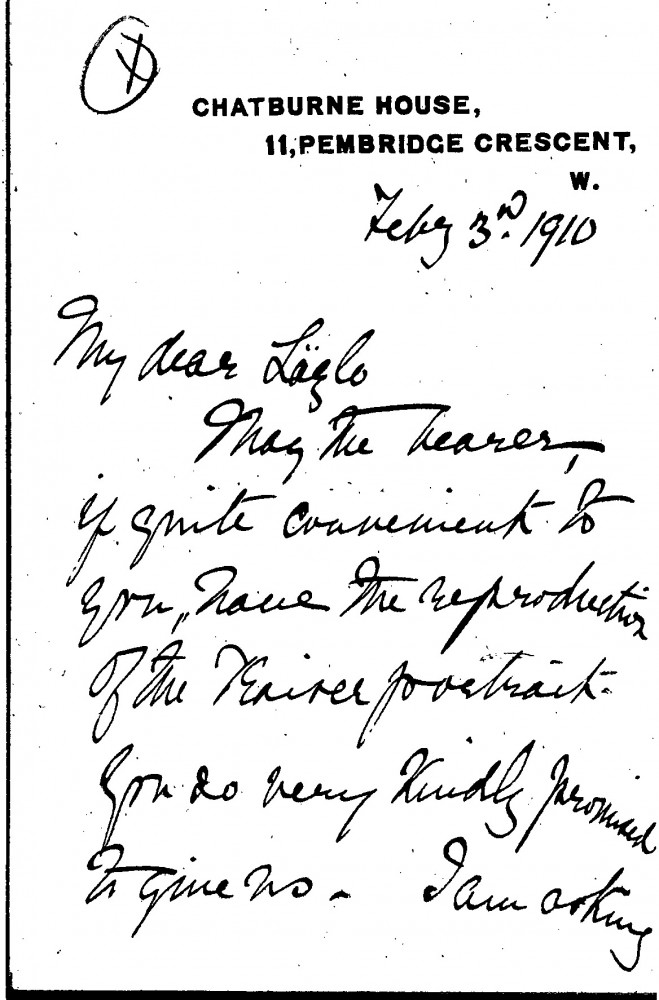 CHATBURNE HOUSE,
11, PEMBRIDGE CRESCENT,
W.
Feby 3rd. 1910
My dear László
May the bearer,
if quite convenient to
you, have the reproduction
of the Kaiser portrait
you so very kindly promised
to give us. I am asking